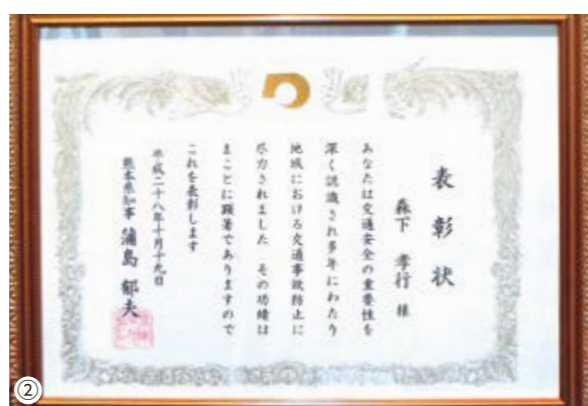 表彰状
森下 孝行 様
あなたは交通安全の重要性を
深く認識され多年にわたり
地域における交通事故防止に
尽力されました その功績は
まことに顕著でありますので
これを表彰します
平成二十八年十月十九日
熊本県知事 蒲島 郁夫
②